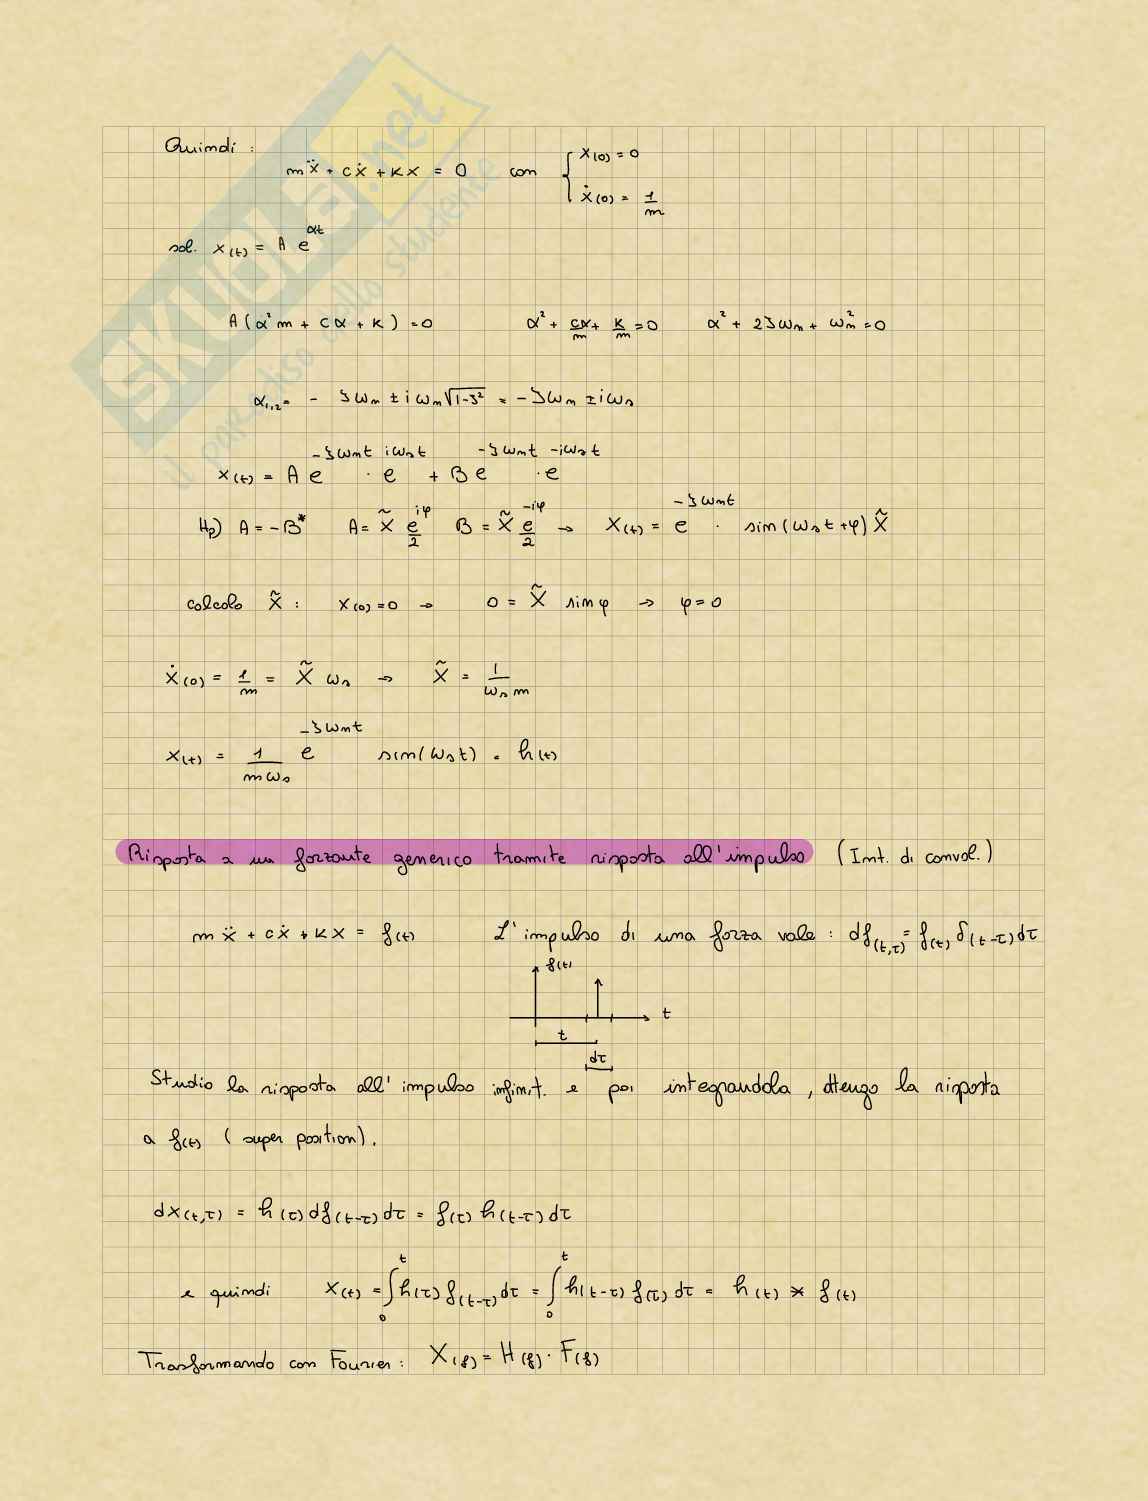 Quindi :
mẍ + cẋ + kx = 0 con { x(0) = 0
ẋ(0) = 1/m
sol. x(t) = A e^αt
A(α²m + cα + k) = 0 α² + cα/m + k/m = 0 α² + 2ζωn + ωn² = 0
α1,2 = - ζωn ± iωn√1-ζ² = - ζωn ± iωs
x(t) = A e^-ζωnt · e^iωst + B e^-ζωnt · e^-iωst
Hp) A = -B* A = X̃ e^iφ/2 B = X̃ e^-iφ/2 → x(t) = e^-ζωnt · sin(ωst+φ) X̃
calcolo X̃ : x(0) = 0 → 0 = X̃ sinφ → φ = 0
ẋ(0) = 1/m = X̃ ωs → X̃ = 1/ωsm
x(t) = 1/mωs e^-ζωnt sin(ωst) = h(t)
Risposta a un forzante generico tramite risposta all'impulso (Int. di convol.)
mẍ + cẋ + kx = f(t) L'impulso di una forza vale : df(t,τ) = f(t) δ(t-τ)dτ
f(t)
t
t
dτ
Studio la risposta all'impulso infinit. e poi integrandola, ottengo la risposta
a f(t) (super position).
dx(t,τ) = h(τ)df(t-τ)dτ = f(τ)h(t-τ)dτ
e quindi x(t) = ∫₀ᵗ h(τ) f(t-τ)dτ = ∫₀ᵗ h(t-τ) f(τ)dτ = h(t) * f(t)
Trasformando con Fourier : X(f) = H(f) · F(f)
SKUOLA.net
il paradiso dello studente